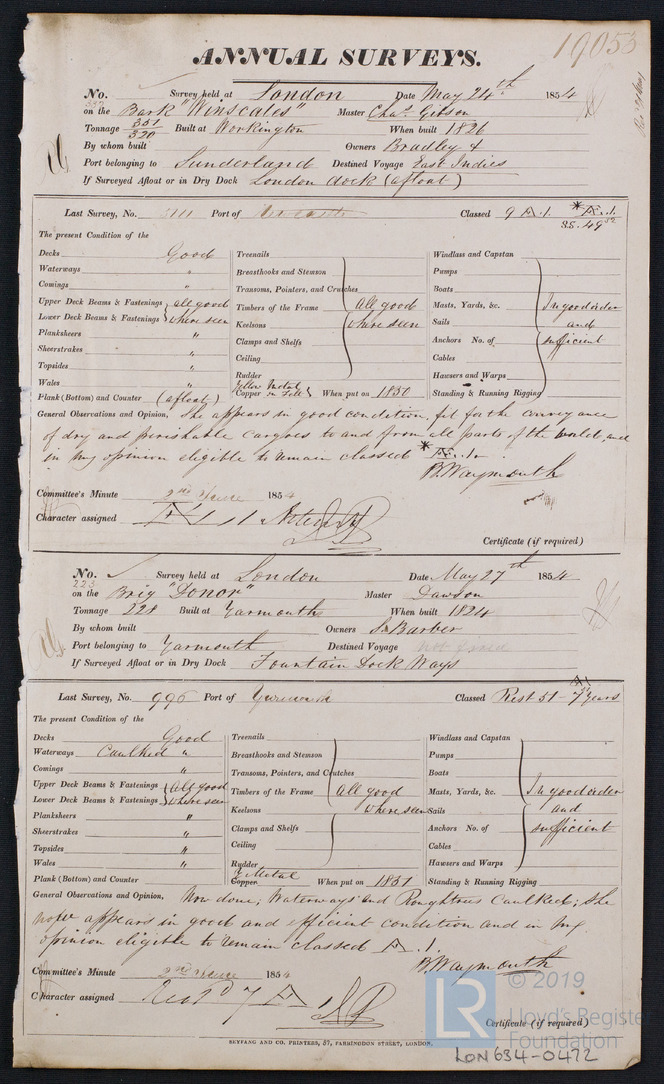 19053
ANNUAL SURVEYS.
No. Survey held at London Date May 24th 1854
on the Bark "Winscales" Master Chas. Gibson
Tonnage 351/320 Built at Workington When built 1826
By whom built Owners Bradley &
Port belonging to Sunderland Destined Voyage East Indies
If Surveyed Afloat or in Dry Dock London dock (afloat)
Last Survey, No. Port of Classed 9 Æ.1. *Æ.1.
35.49
The present Condition of the
Decks Good Treenails Windlass and Capstan
Waterways " Breasthooks and Stemson Pumps
Comings " Transoms, Pointers, and Crutches Boats
Upper Deck Beams & Fastenings all good Timbers of the Frame All good Masts, Yards, &c. In good order
Lower Deck Beams & Fastenings where seen Keelsons where seen Sails and
Planksheers " Clamps and Shelfs Anchors No. of sufficient
Sheerstrakes " Ceiling Cables
Topsides " Rudder Hawsers and Warps
Wales " Yellow Metal
Plank (Bottom) and Counter (afloat) Copper on Felt When put on 1850 Standing & Running Rigging
General Observations and Opinion, She appears in good condition, fit for the conveyance
of dry and perishable cargoes to and from all parts of the world, and
in my opinion eligible to remain classed *Æ.1.
B. Waymouth
Committee's Minute 2nd June 1854
Character assigned
Certificate (if required)
No. Survey held at London Date May 27th 1854
223
on the Brig "Donor" Master Dawson
Tonnage 228 Built at Yarmouth When built 1824
By whom built Owners S. Barber
Port belonging to Yarmouth Destined Voyage not fixed
If Surveyed Afloat or in Dry Dock Fountain Dock Ways
Last Survey, No. 996 Port of Yarmouth Classed Rest 51 - 7 Years
The present Condition of the
Decks Good Treenails Windlass and Capstan
Waterways Caulked " Breasthooks and Stemson Pumps
Comings " Transoms, Pointers, and Crutches Boats
Upper Deck Beams & Fastenings All good Timbers of the Frame All good Masts, Yards, &c. In good order
Lower Deck Beams & Fastenings where seen Keelsons where seen Sails and
Planksheers " Clamps and Shelfs Anchors No. of sufficient
Sheerstrakes " Ceiling Cables
Topsides " Rudder Hawsers and Warps
Wales " Y Metal
Plank (Bottom) and Counter Copper When put on 1851 Standing & Running Rigging
General Observations and Opinion, Now done; Waterways and Roughtrees Caulked; She
now appears in good and efficient condition and in my
opinion eligible to remain classed Æ.1.
B. Waymouth
Committee's Minute 2nd June 1854
Character assigned Rest'd 7 Æ 1
Certificate (if required)
SEYFANG AND CO. PRINTERS, 57, FARRINGDON STREET, LONDON.
© 2019
LR Lloyd's Register
Foundation
LON634-0472